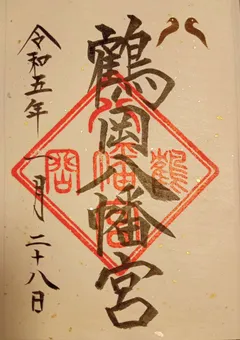 鶴岡八幡宮
令和五年
一月
二十八日
鶴
岡
八
幡
宮